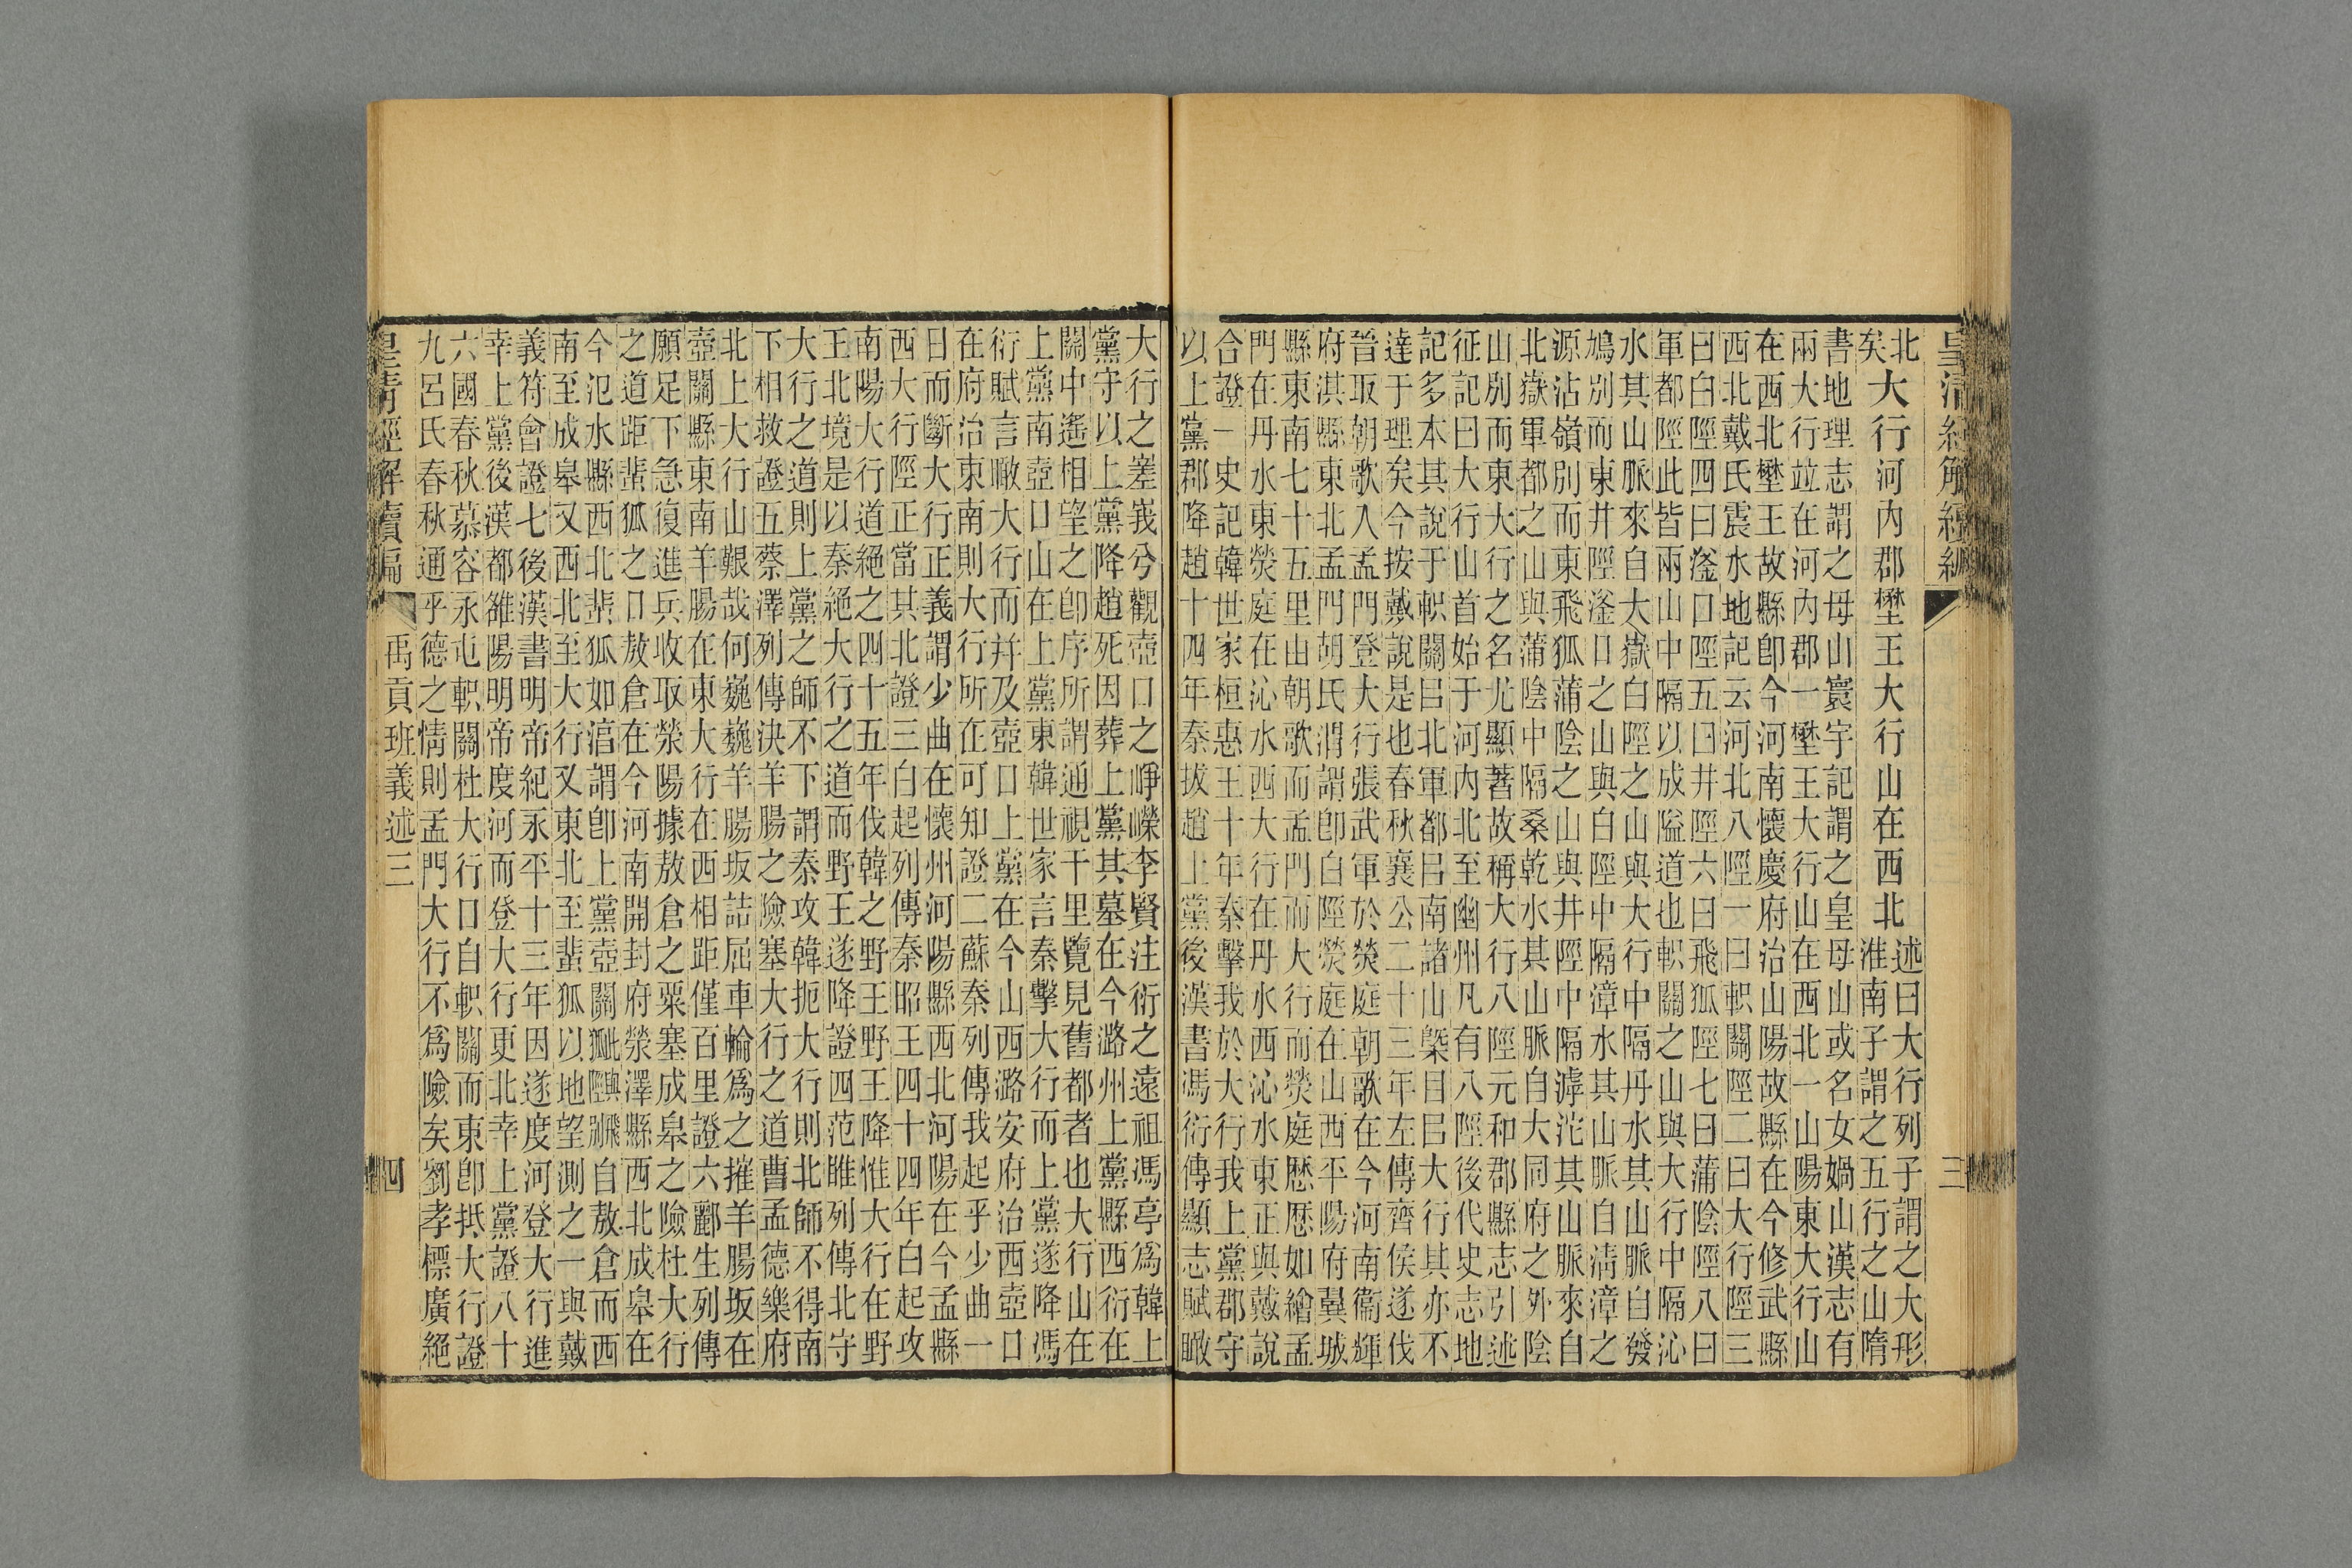 皇清經解續編 三
北
矣
大行河內郡壄王大行山在西北
述曰大行列子謂之大形
淮南子謂之五行之山隋
書地理志謂之母山寰宇記謂之皇母山或名女媧山漢志有
兩大行竝在河內郡一壄王大行山在西北一山陽東大行山
在西北壄王故縣卽今河南懷慶府治山陽故縣在今修武縣
西北戴氏震水地記云河北八陘一曰軹關陘二曰大行陘三
曰白陘四曰滏口陘五曰井陘六曰飛狐陘七曰蒲陰陘八曰
軍都陘此皆兩山中隔以成隘道也軹關之山與大行中隔沁
水其山脈來自大嶽白陘之山與大行中隔丹水其山脈自發
鳩別而東井陘滏口之山與白陘中隔漳水其山脈自淸漳之
源沾嶺別而東飛狐蒲陰之山與井陘中隔滹沱其山脈來自
北嶽軍都之山與蒲陰中隔桑乾水其山脈自大同府之外陰
山別而東大行之名尤顯著故稱大行八陘元和郡縣志引述
征記曰大行山首始于河內北至幽州凡有八陘後代史志地
記多本其說于軹關㠯北軍都㠯南諸山槩目㠯大行其亦不
達于理矣今按戴說是也春秋襄公二十三年左傳齊侯遂伐
晉取朝歌入孟門登大行張武軍於熒庭朝歌在今河南衞輝
府淇縣東北孟門胡氏渭謂卽白陘熒庭在山西平陽府翼城
縣東南七十五里由朝歌而孟門而大行而熒庭歷歷如繪孟
門在丹水東熒庭在沁水西大行在丹水西沁水東正與戴說
合證一史記韓世家桓惠王十年秦擊我於大行我上黨郡守
以上黨郡降趙十四年秦拔趙上黨後漢書馮衍傳顯志賦瞰
大行之嵳峩兮觀壺口之崢嶸李賢注衍之遠祖馮亭爲韓上
黨守以上黨降趙死因葬上黨其墓在今潞州上黨縣西衍在
關中遙相望之卽序所謂通視千里覽見舊都者也大行山在
上黨南壺口山在上黨東韓世家言秦擊大行而上黨遂降馮
衍賦言瞰大行而幷及壺口上黨在今山西潞安府治西壺口
在府治東南則大行所在可知證二蘇秦列傳我起乎少曲一
日而斷大行正義謂少曲在懷州河陽縣西北河陽在今孟縣
西大行陘正當其北證三白起列傳秦昭王四十四年白起攻
南陽大行道絕之四十五年伐韓之野王野王降惟大行在野
王北境是以秦絕大行之道而野王遂降證四范睢列傳北守
大行之道則上黨之師不下謂秦攻韓扼大行則北師不得南
下相救證五蔡澤列傳決羊腸之險塞大行之道曹孟德樂府
北上大行山艱哉何巍巍羊腸坂詰屈車輪爲之摧羊腸坂在
壺關縣東南羊腸在東大行在西相距僅百里證六酈生列傳
願足下急復進兵收取滎陽據敖倉之粟塞成臯之險杜大行
之道距蜚狐之口敖倉在今河南開封府滎澤縣西北成臯在
今氾水縣西北蜚狐如㴞謂卽上黨壺關此與飛狐陘別自敖倉而西
南至成臯又西北至大行又東北至蜚狐以地望測之一與戴
義符會證七後漢書明帝紀永平十三年因遂度河登大行進
幸上黨後漢都雒陽明帝度河而登大行更北幸上黨證八十
六國春秋慕容永屯軹關杜大行口自軹關而東卽抵大行證
九呂氏春秋通乎德之情則孟門大行不爲險矣劉孝標廣絕
皇清經解續編 禹貢班義述三 四